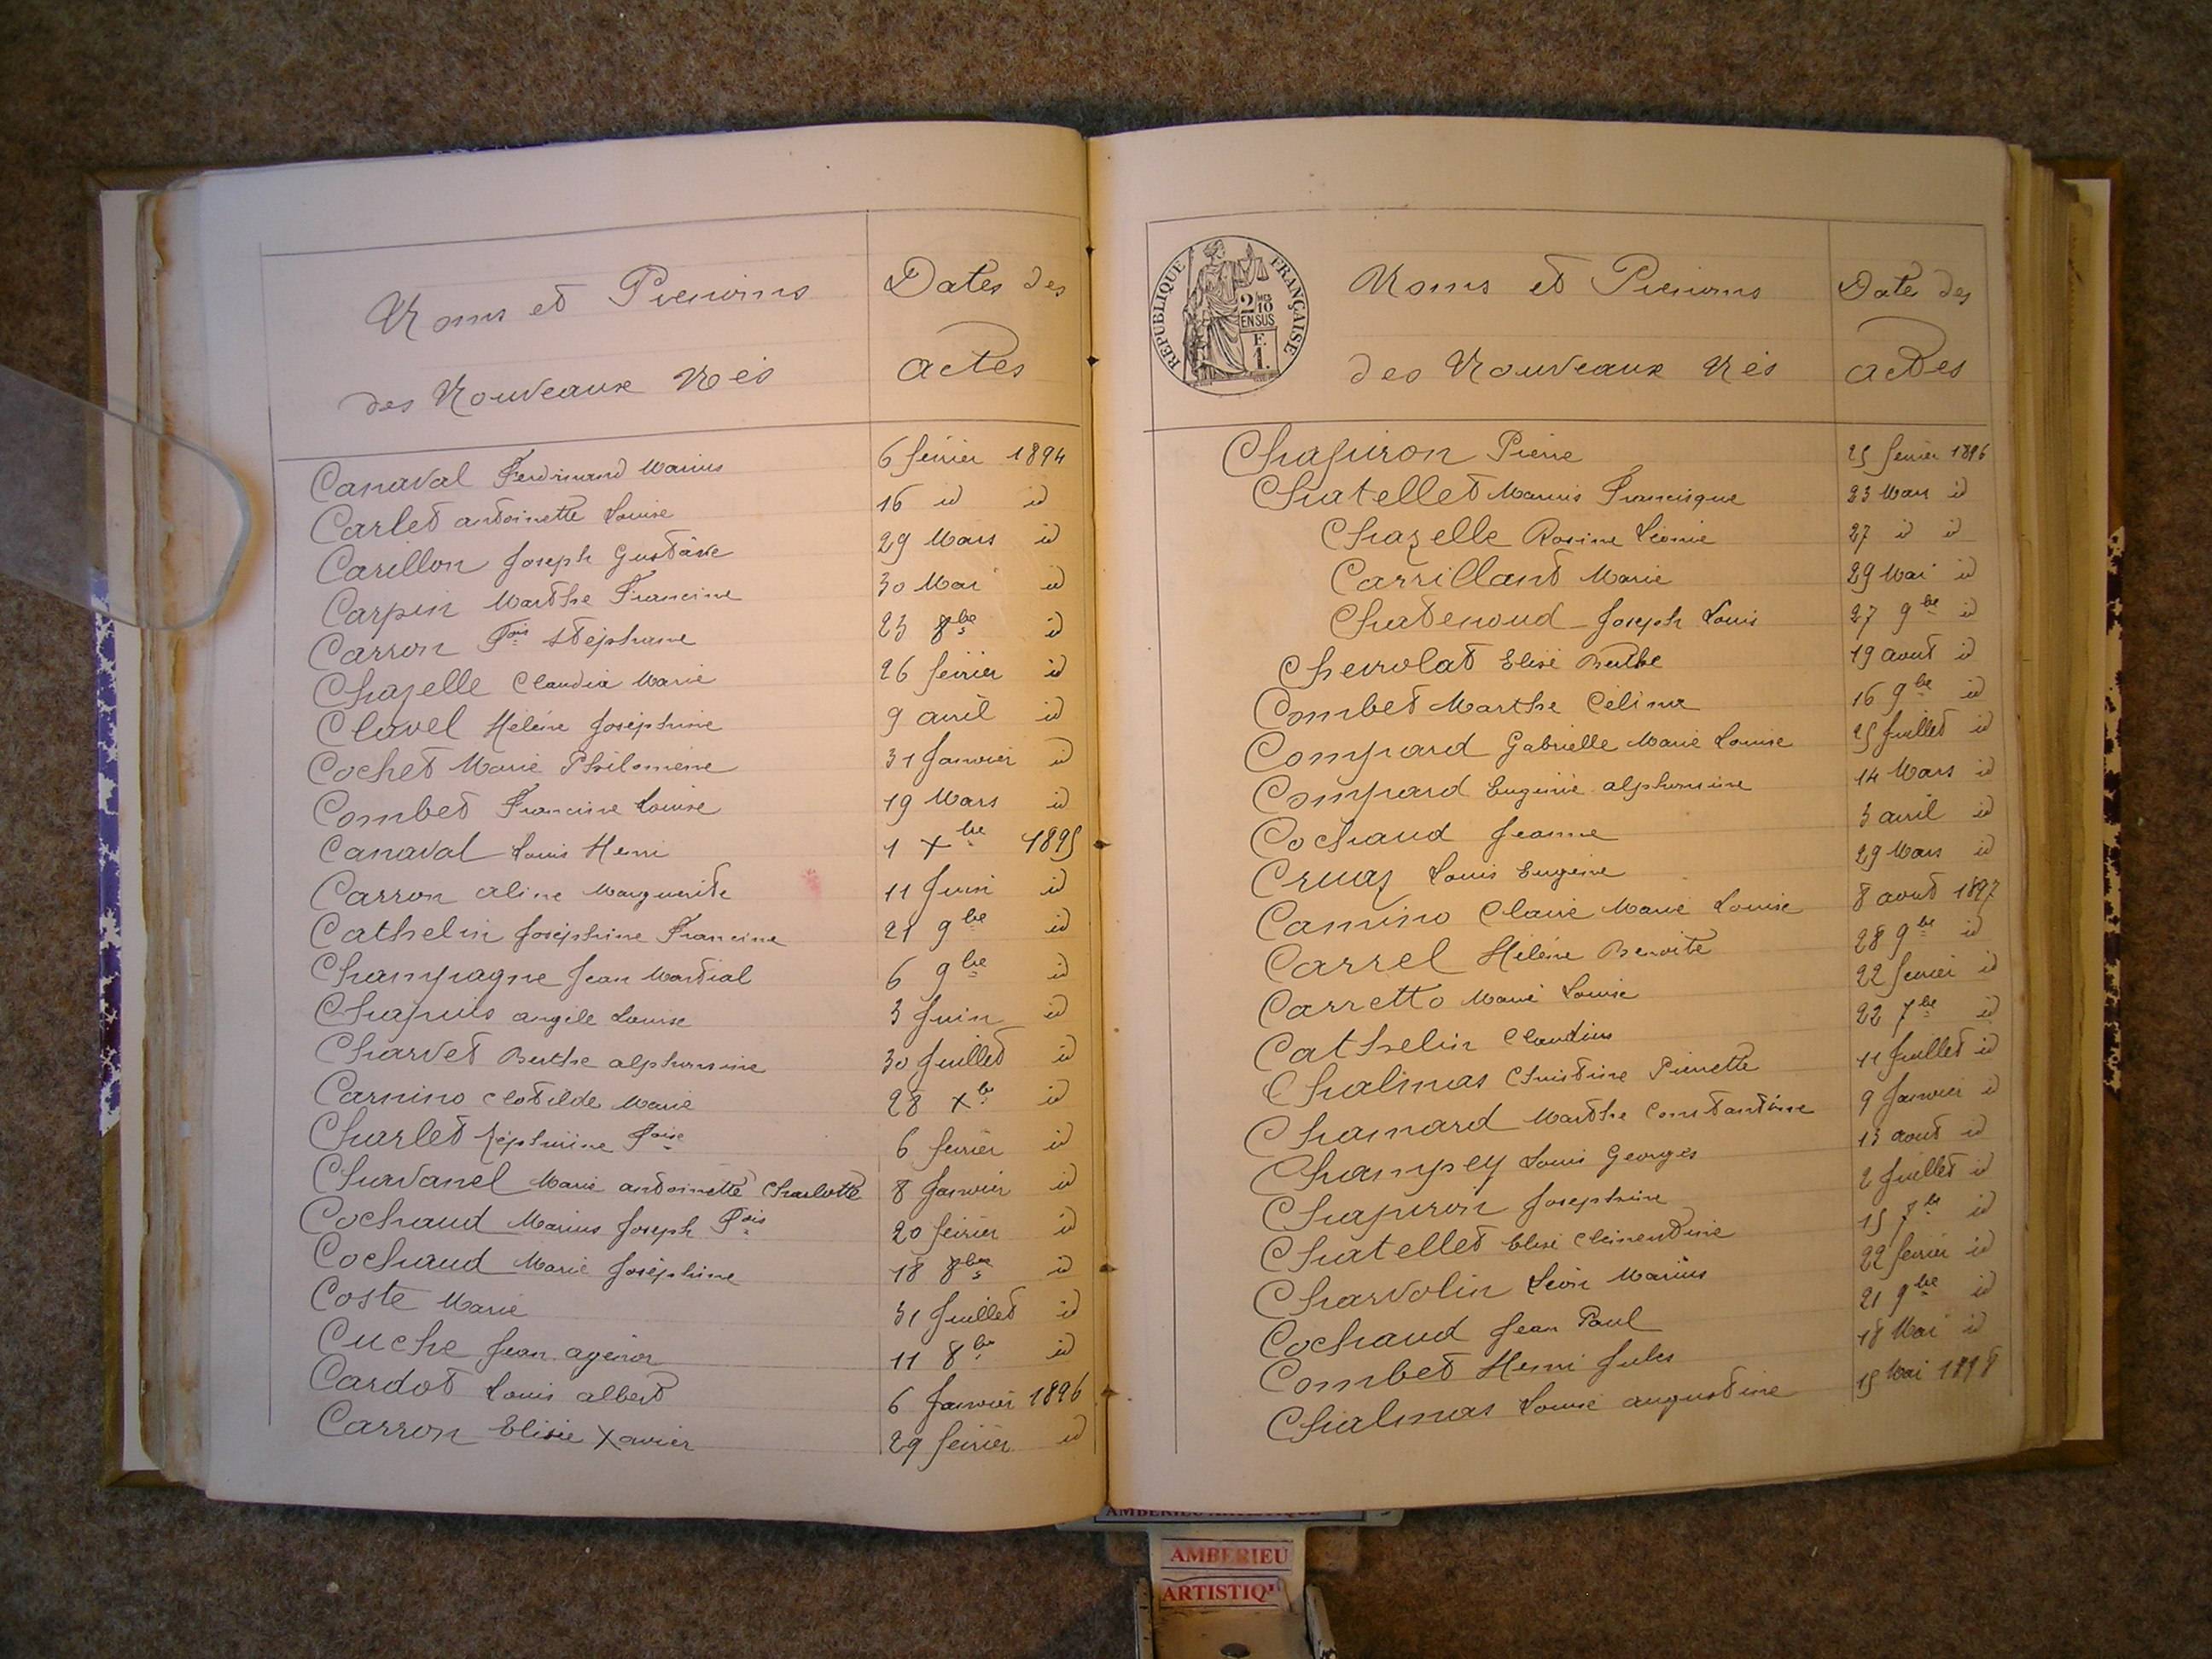 Noms et Prenoms
des Nouveaux Nés
Dates des
actes
Canaval Ferdinand Marius 6 février 1894
Carlet antoinette Louise 16 id id
Carillon Joseph Gustave 29 Mars id
Carpin Marthe Francine 30 Mai id
Carron Fois Stéphane 23 8bre id
Chazelle Claudia Marie 26 février id
Clavel Hélène Joséphine 9 avril id
Cochet Marie Philomène 31 Janvier id
Combet Francine Louise 19 Mars id
Canaval Louis Henri 1 Xbre 1895
Carron aline Marguerite 11 Juin id
Cathelin Joséphine Francine 21 9bre id
Champagne Jean Martial 6 9bre id
Chapuis angèle Louise 3 Juin id
Charvet Berthe alphonsine 30 Juillet id
Carnino Clotilde Marie 28 Xbr id
Charlet Zéphirine Foise 6 février id
Chavanel Marie antoinette Charlotte 8 Janvier id
Cochaud Marius Joseph Fois 20 février id
Cochaud Marie Joséphine 18 8bre id
Coste Marie 31 Juillet id
Cuche Jean agénor 11 8br id
Cardot Louis albert 6 Janvier 1896
Carron Elisée Xavier 29 février id
REPUBLIQUE FRANÇAISE
2 DES 10
EN SUS
F.
1.
Noms et Prenoms
des Nouveaux Nés
Dates des
actes
Chapiron Pierre 25 février 1896
Chatellet Marius Francisque 23 Mars id
Chazelle Rosine Léonie 27 id id
Carrillant Marie 29 Mai id
Chatenoud Joseph Louis 27 9bre id
Chevrolat Elise Berthe 19 aout id
Combet Marthe Célina 16 9bre id
Compard Gabrielle Marie Louise 25 Juillet id
Compard Eugénie alphonsine 14 Mars id
Cochaud Jeanne 3 avril id
Cruaz Louis Eugène 29 Mars id
Camino Claire Marie Louise 8 aout 1897
Carrel Hélène Benoite 28 9bre id
Carretto Marie Louise 22 février id
Cathelin Claudius 22 7bre id
Chalmas Christine Pierrette 11 Juillet id
Chamard Marthe Constantine 9 Janvier id
Champey Louis Georges 13 aout id
Chapiron Josephine 2 Juillet id
Chatellet Elise Clémentine 15 7br id
Charvolin Léon Marius 22 février id
Cochaud Jean Paul 21 9bre id
Combet Henri Jules 18 Mai id
Chalmas Louise augustine 15 Mai 1898
AMBERIEU ARTISTIQUE
AMBERIEU
ARTISTIQU